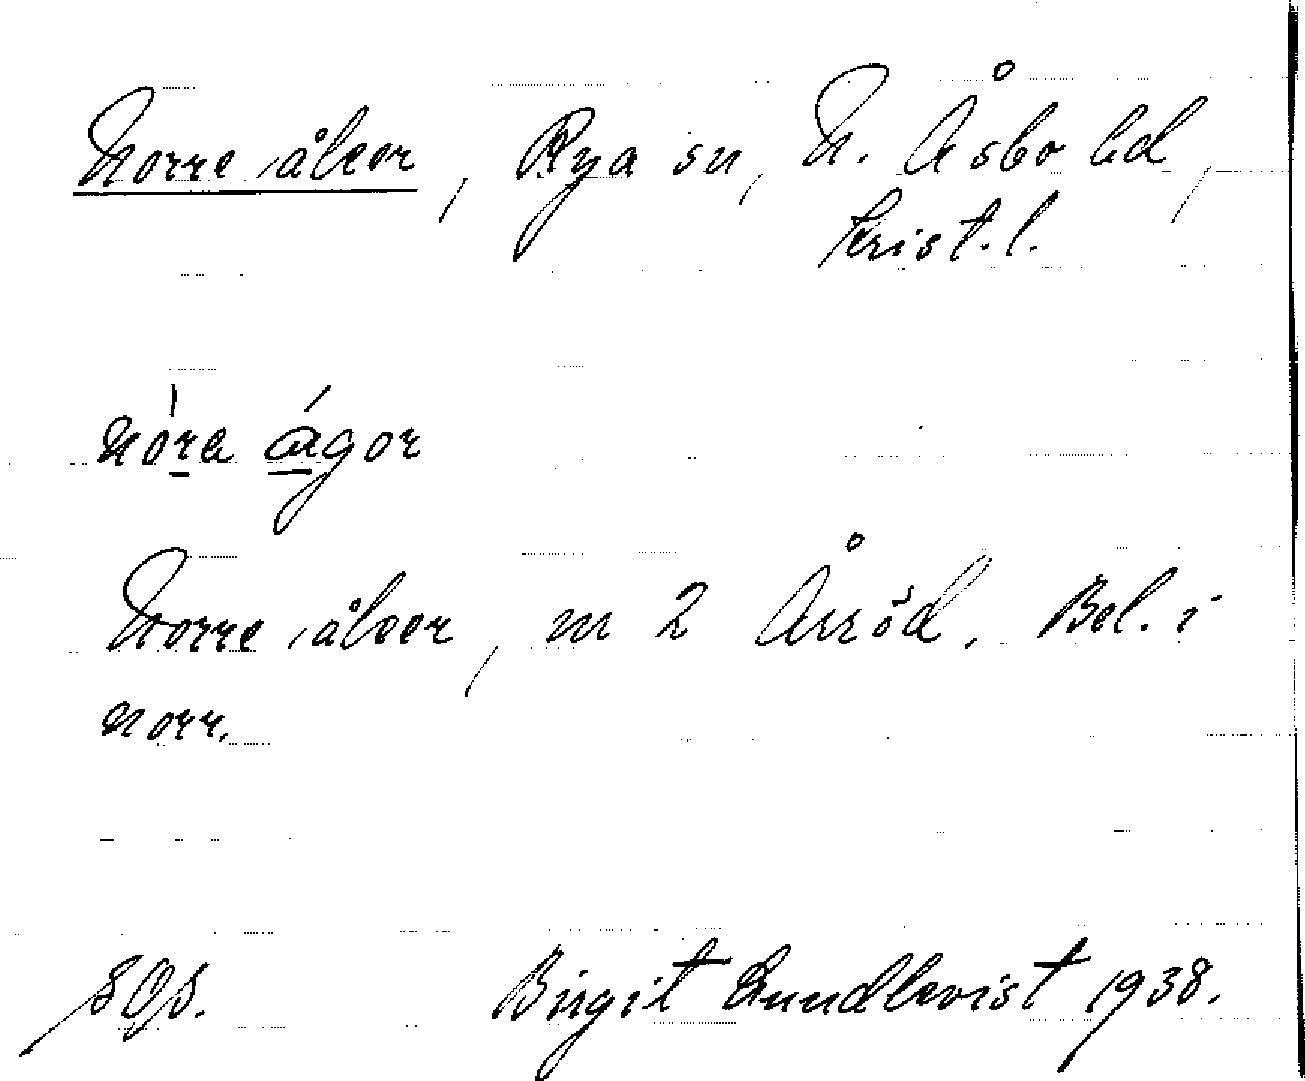 Norre åker, Rya sn, N. Åsbo hd,
Krist.l.
nóra ágor
Norre åker, m 2 Årröd. Bel. i
norr.
SOS. Birgit Lundkvist 1938.